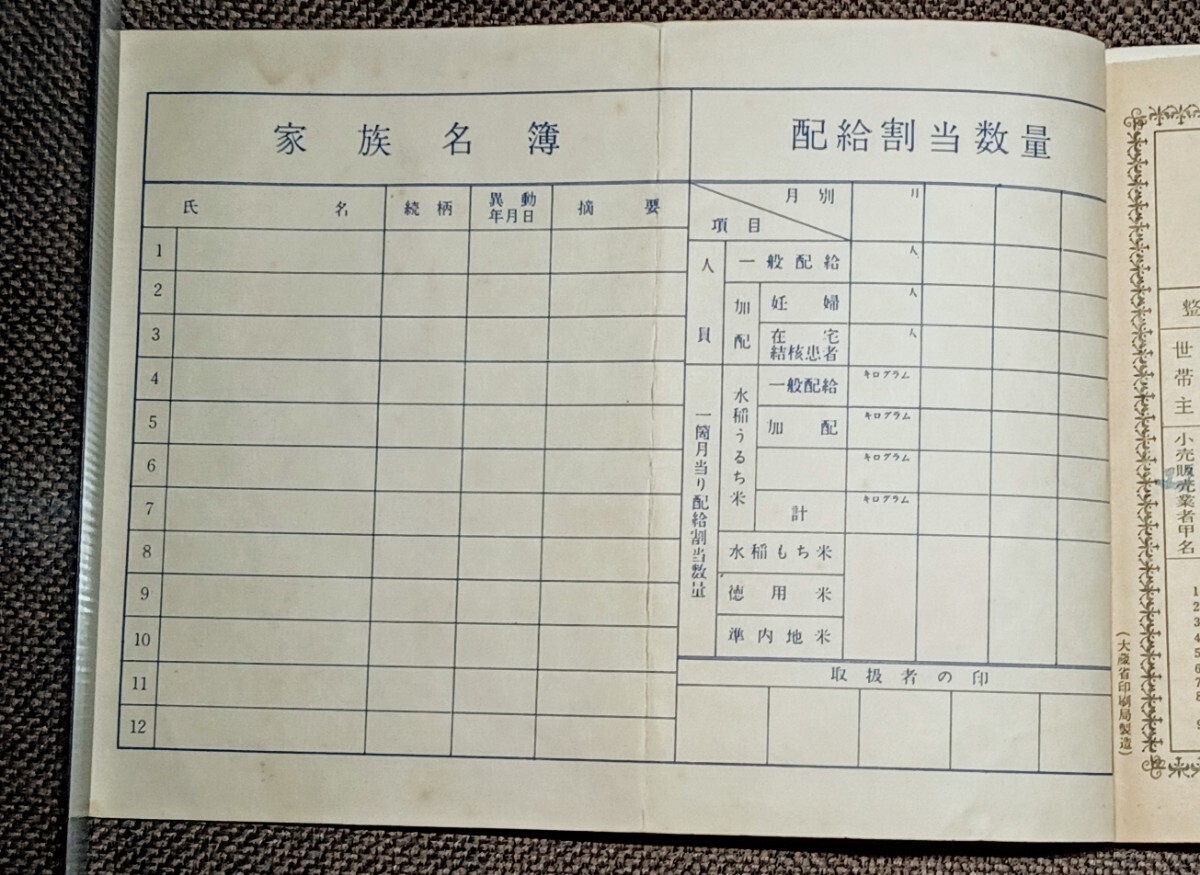 家族名簿
氏名 続柄 異動年月日 摘要
1
2
3
4
5
6
7
8
9
10
11
12
配給割当数量
月別 月
項目
人員
一般配給 人
加配
妊婦 人
在宅結核患者 人
一箇月当り配給割当数量
水稲うるち米
一般配給 キログラム
加配 キログラム
キログラム
計 キログラム
水稲もち米
徳用米
準内地米
取扱者の印
(大蔵省印刷局製造)
整
世帯主
小売販売業者甲名
1
2
3
4
5
6
7
8
9